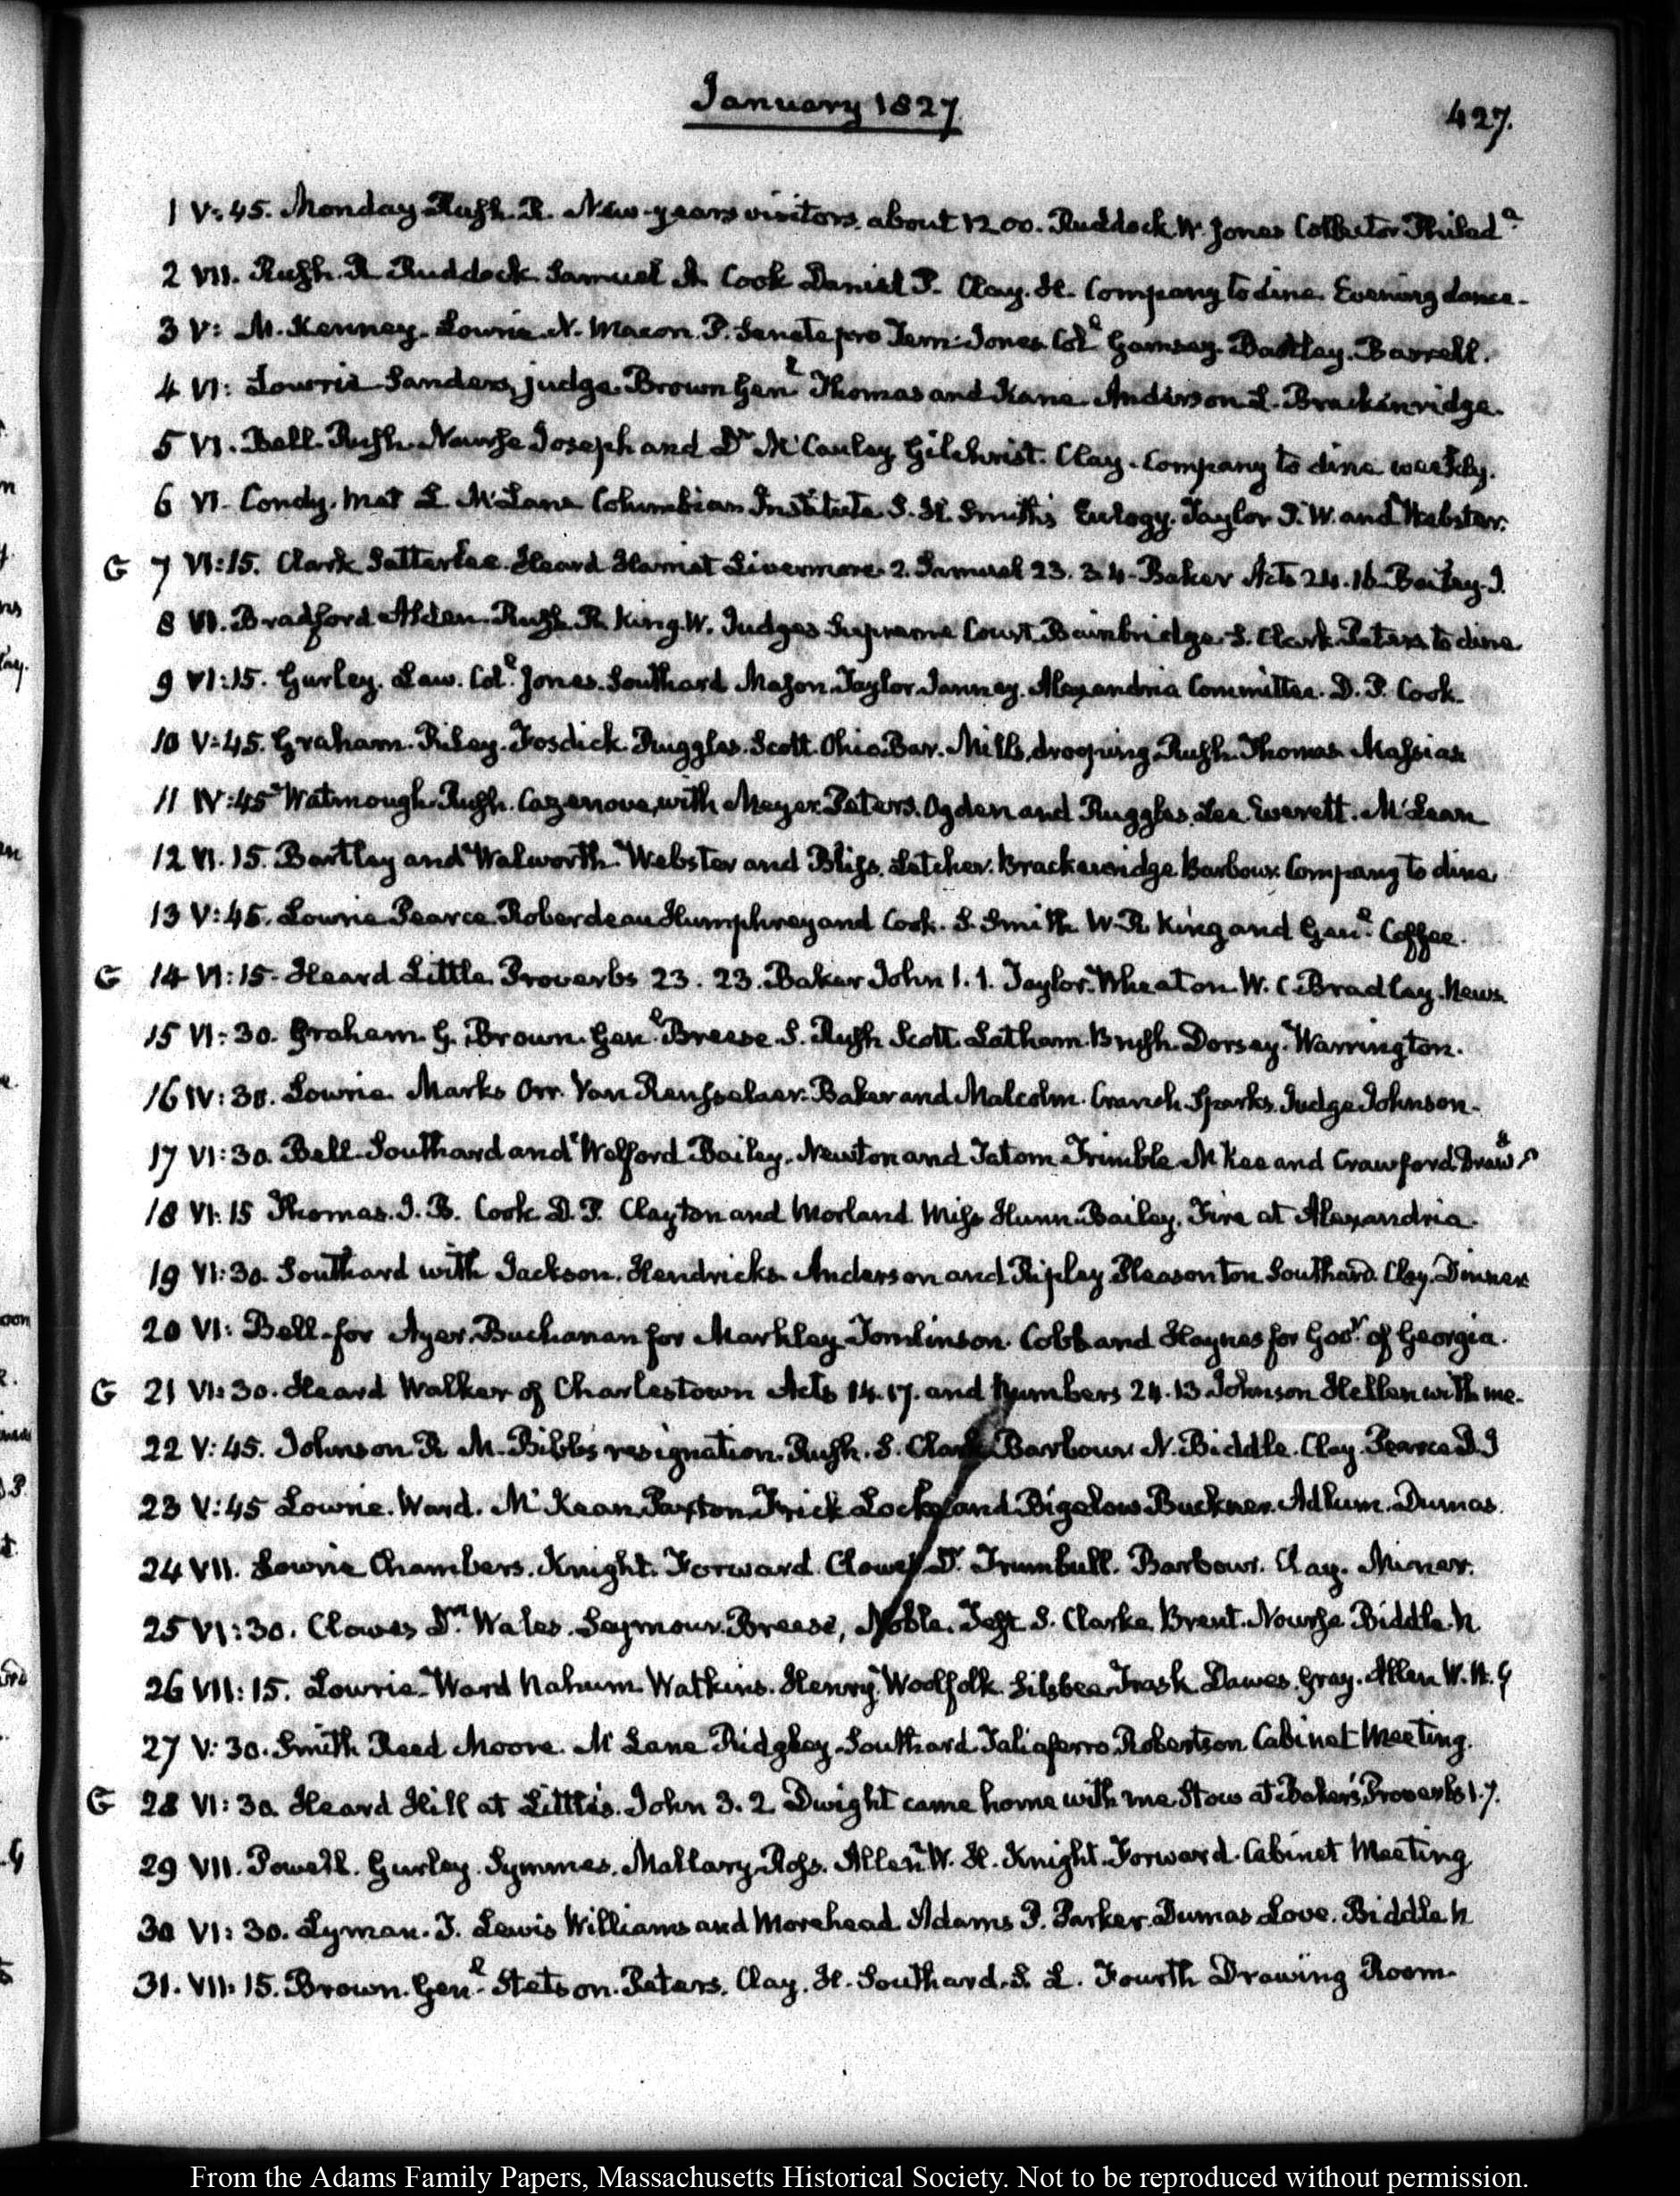 January 1827.
427.
1 V:45. Monday. Rush. R. New-years visitors, about 1200. Ruddock. W. Jones Collector Philada.
2 VII. Rush. R Ruddock Samuel A. Cook Daniel P. Clay. H. Company to dine. Evening dance.
3 V: M. Kenney. Lowrie. N. Macon. P. Senate pro Tem. Jones. Coll. Gamsey. Bartley. Barrell.
4 VI: Lowrie Sanders, judge. Brown Genl. Thomas and Kane. Anderson. L. Brackenridge.
5 VI. Bell. Rush. Nourse Joseph and Dr. McCauley Gilchrist. Clay. Company to dine weekly.
6 VI. Condy. Met L. McLane Columbian Institute. S. H. Smith's Eulogy. Taylor J. W. and Webster.
G 7 VI:15. Clark Satterlee. Heard Harriet Livermore. 2. Samuel 23. 3.4. Baker Acts 24.16. Bailey. J.
8 VI. Bradford Alden. Rush. R. King. W. Judges Supreme Court. Bainbridge. S. Clark. Peters. to dine
9 VI:15. Gurley. Law. Coll. Jones. Southard Mason. Taylor. Janney. Alexandria Committee. D. P. Cook.
10 V:45. Graham. Riley. Fosdick. Ruggles. Scott. Ohio Bar. Mills, drooping. Rush. Thomas. Massias
11 IV:45 Watmough. Rush. Cazenove, with Meyer. Peters. Ogden and Ruggles. Lee. Everett. McLean
12 VI.15. Bartley and Walworth. Webster and Bliss. Letcher. Brackenridge Barbour. Company to dine
13 V:45. Lowrie Pearce. Roberdeau Humphrey and Cook. S. Smith. W. R. King and Genl. Coffee.
G 14 VI:15. Heard Little. Proverbs 23. 23. Baker John 1. 1. Taylor. Wheaton. W. C. Bradley. News.
15 VI:30. Graham. G. Brown. Genl. Breese. S. Rush Scott. Latham. Brush. Dorsey. Warrington.
16 IV:30. Lowrie. Marks Orr. Van Rensselaer. Baker and Malcolm. Cranch. Sparks. Judge Johnson.
17 VI:30. Bell. Southard and Welford Bailey. Newton and Tatom Trimble McKee and Crawford.
18 VI:15 Thomas. J. B. Cook. D. P. Clayton and Morland Miss Hunn. Bailey. Fire at Alexandria.
19 VI:30. Southard with Jackson. Hendricks. Anderson and Ripley Pleasonton Southard. Clay. Dinner
20 VI: Bell. for Ayer. Buchanan for Markley. Tomlinson. Cobb and Haynes for Govr. of Georgia.
G 21 VI:30. Heard Walker of Charlestown Acts 14.17. and Numbers 24.13 Johnson Hellen with me.
22 V:45. Johnson R. M. Bibb's resignation. Rush. S. Clark Barbour N. Biddle. Clay. Pearce D. J
23 V:45 Lowrie. Ward. McKean Paxton. Frick Locke and Bigelow Buckner. Adlum. Dumas.
24 VII. Lowrie Chambers. Knight. Forward. Clowes Dr. Trumbull. Barbour. Clay. Miner.
25 VI:30. Clowes Dr. Wales. Seymour. Breese, Noble. Tefft S. Clarke. Brent. Nourse. Biddle. N
26 VII:15. Lowrie. Ward Nahum. Watkins. Henry. Woolfolk. Silsbee. Trask Dawes. Gray. Allen W. H. G
27 V:30. Smith Reed Moore. McLane Ridgley. Southard. Taliaferro. Robertson. Cabinet Meeting.
G 28 VI:30. Heard Hill at Little's. John 3. 2 Dwight came home with me Stow at Baker's Proverbs 1.7.
29 VII. Powell. Gurley. Symmes. Mallary. Ross. Allen W. H. Knight. Forward. Cabinet Meeting
30 VI:30. Lyman. T. Lewis Williams and Morehead. Adams P. Parker. Dumas Love. Biddle. N
31. VII:15. Brown. Genl. Stetson. Peters. Clay. H. Southard. S. L. Fourth Drawing Room.
From the Adams Family Papers, Massachusetts Historical Society. Not to be reproduced without permission.